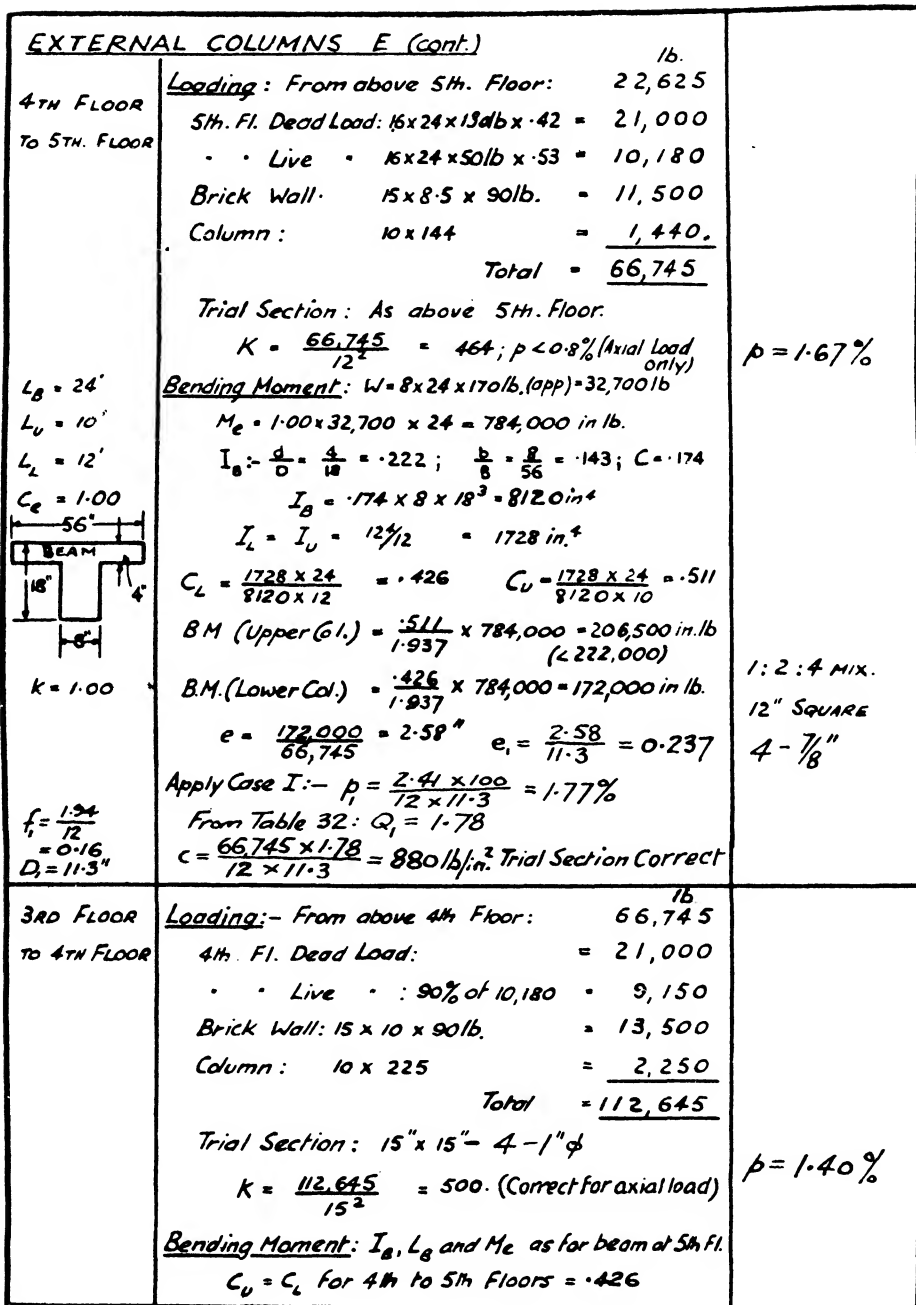 EXTERNAL COLUMNS E (cont.)
4TH FLOOR
TO 5TH. FLOOR
lb.
Loading: From above 5th. Floor: 22,625
5th. Fl. Dead Load: 16x24x130lb x ·42 = 21,000
" " Live " 16x24x50lb x ·53 = 10,180
Brick Wall. 15 x 8·5 x 90lb. = 11,500
Column: 10 x 144 = 1,440.
Total = 66,745
Trial Section: As above 5th. Floor.
K = 66,745 / 12² = 464; p < 0·8% (Axial Load only)
p = 1·67%
Bending Moment: W = 8x24x170lb.(app) = 32,700 lb
L_B = 24'
L_U = 10'
L_L = 12'
C_e = 1·00
56"
BEAM
18"
4"
8"
K = 1·00
M_e = 1·00 x 32,700 x 24 = 784,000 in lb.
I_B:- d/D = 4/18 = ·222; b/B = 8/56 = ·143; C = ·174
I_B = ·174 x 8 x 18³ = 8120 in⁴
I_L = I_U = 12⁴/12 = 1728 in.⁴
C_L = 1728 x 24 / 8120 x 12 = ·426 C_U = 1728 x 24 / 8120 x 10 = ·511
B M (Upper Col.) = ·511 / 1·937 x 784,000 = 206,500 in.lb
(<222,000)
B.M. (Lower Col.) = ·426 / 1·937 x 784,000 = 172,000 in lb.
1:2:4 MIX.
12" SQUARE
4 - 7/8"
e = 172,000 / 66,745 = 2·58" e₁ = 2·58 / 11·3 = 0·237
Apply Case I:- p₁ = 2·41 x 100 / 12 x 11·3 = 1·77%
f₁ = 1·94 / 12
= 0·16
D₁ = 11·3"
From Table 32: Q₁ = 1·78
c = 66,745 x 1·78 / 12 x 11·3 = 880 lb/in.² Trial Section Correct
3RD FLOOR
TO 4TH FLOOR
lb
Loading:- From above 4th Floor: 66,745
4th. Fl. Dead Load: = 21,000
" " Live " : 90% of 10,180 = 9,150
Brick Wall: 15 x 10 x 90lb. = 13,500
Column: 10 x 225 = 2,250
Total = 112,645
Trial Section: 15" x 15" - 4 - 1" φ
K = 112,645 / 15² = 500. (Correct for axial load)
p = 1·40%
Bending Moment: I_B, L_B and M_e as for beam at 5th Fl.
C_U = C_L for 4th to 5th Floors = ·426